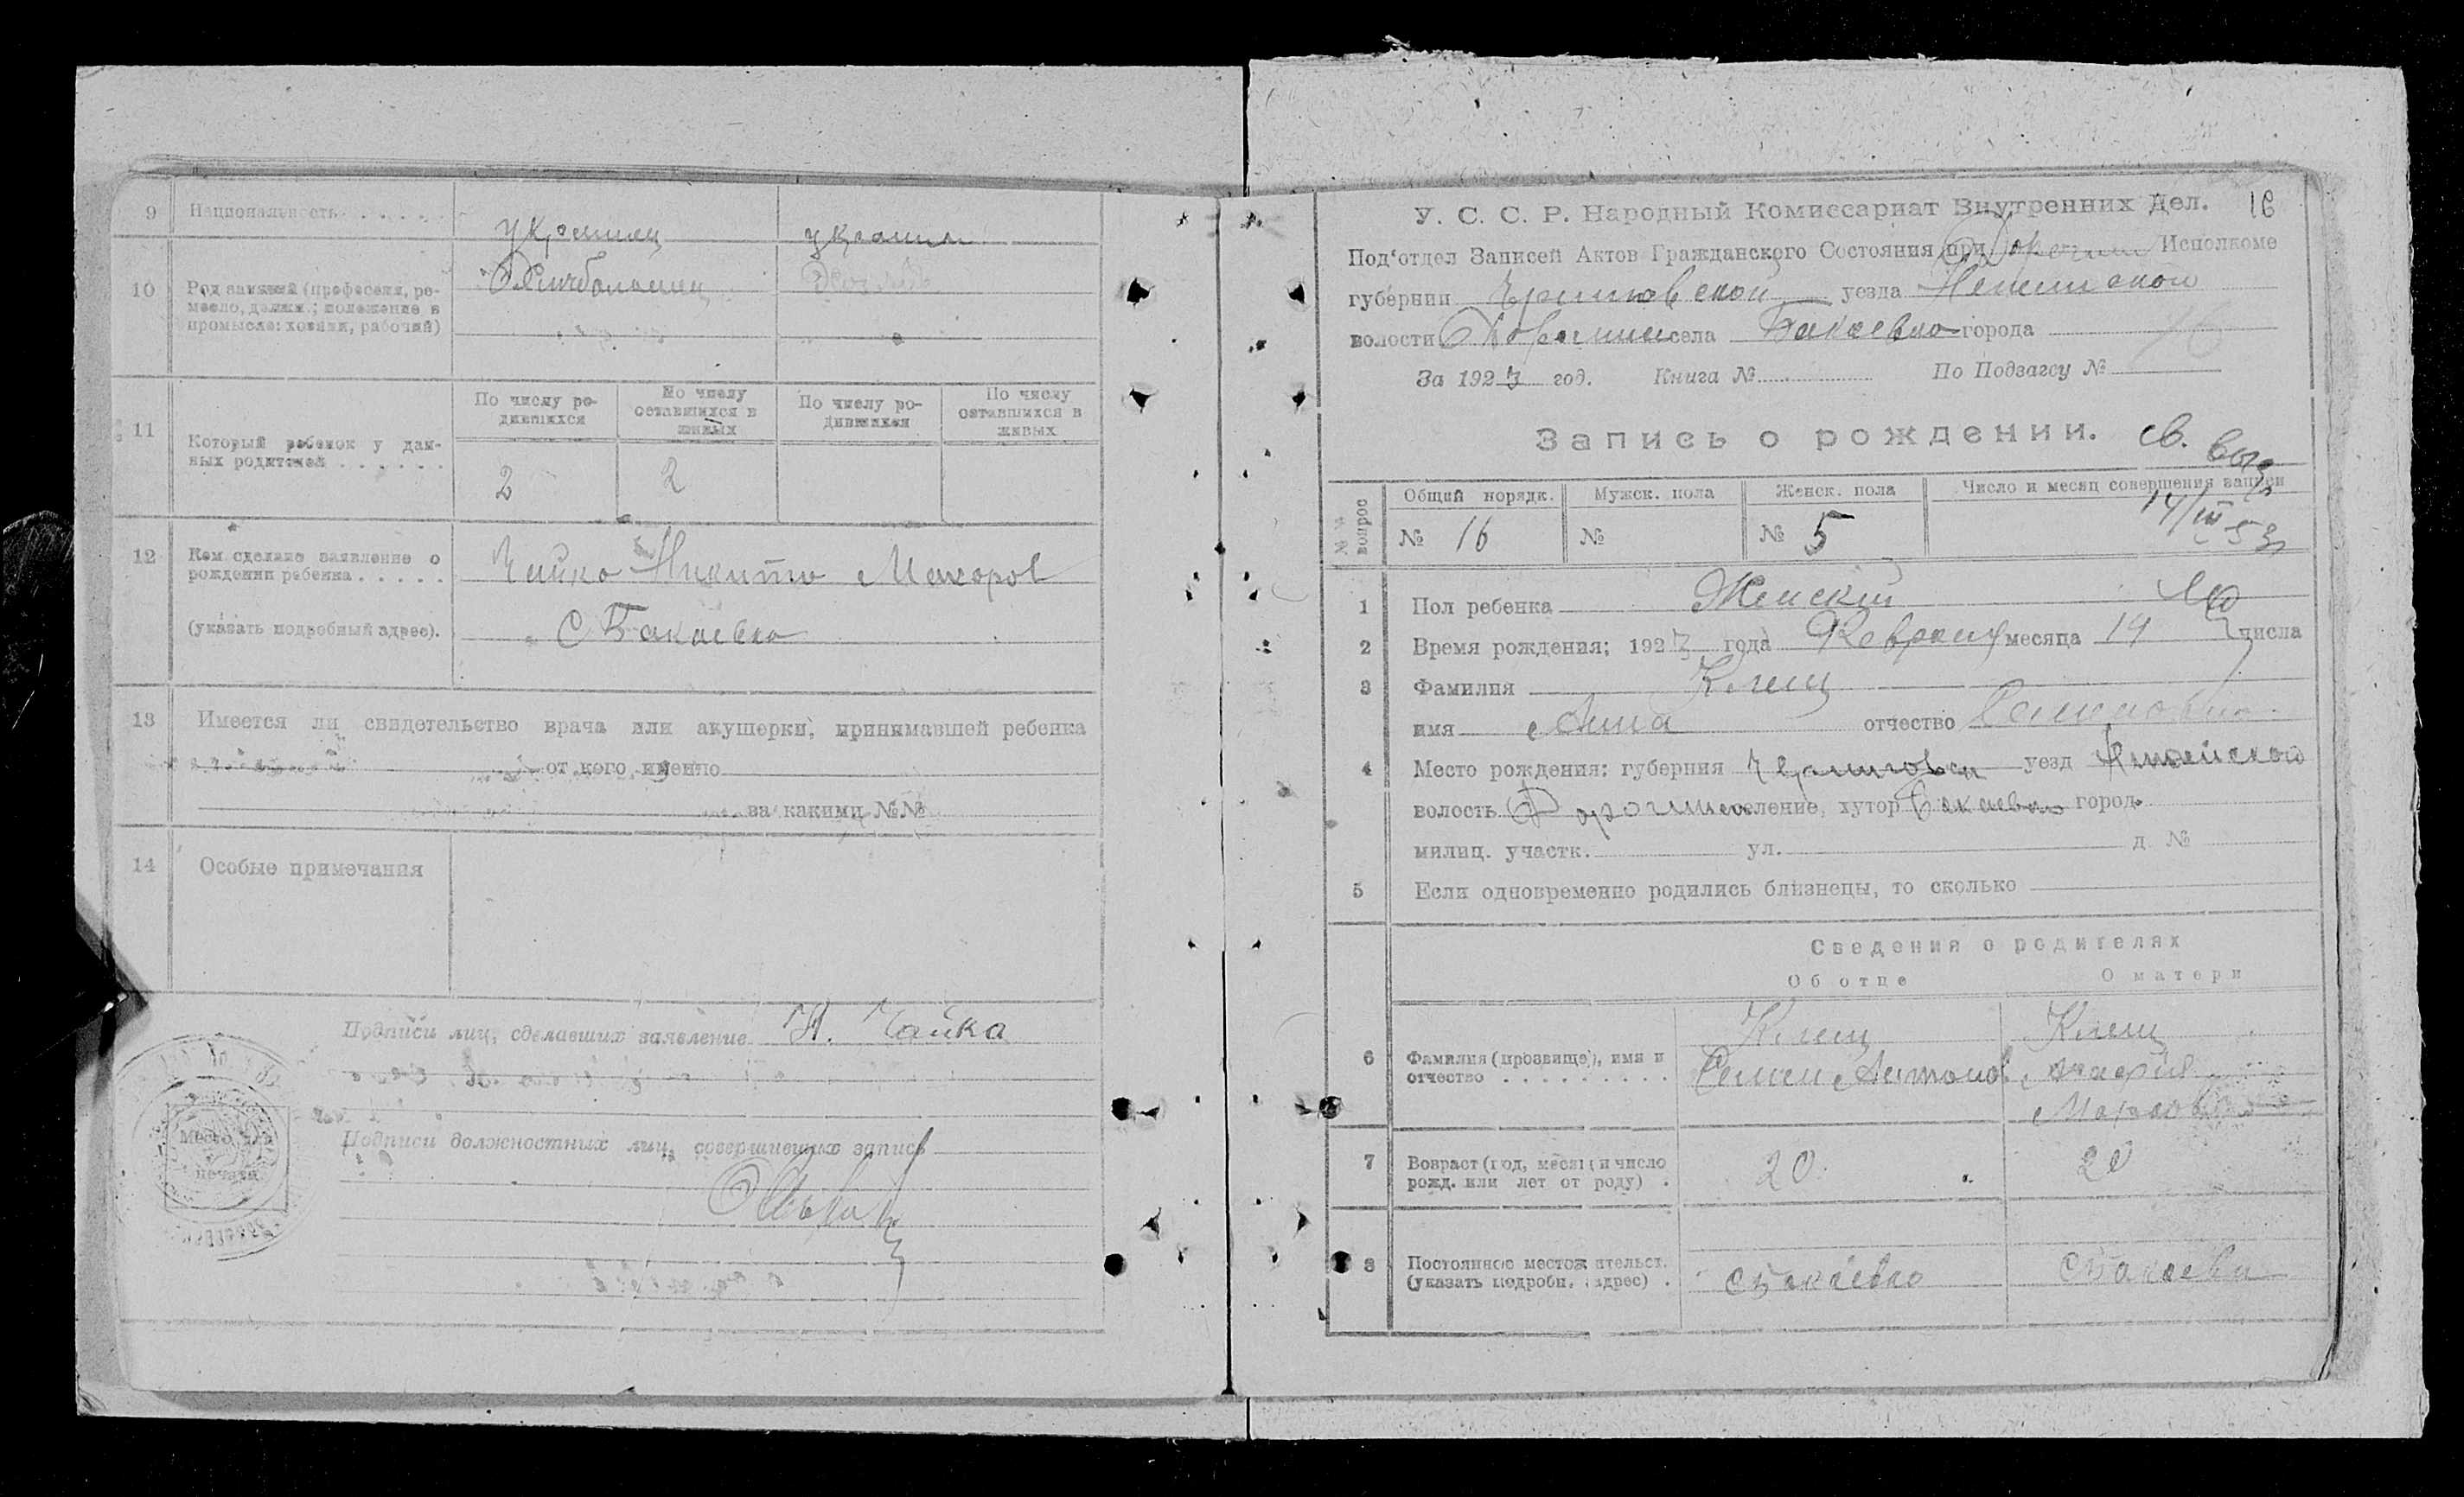 9 Национальность
украинец украин
10 Род занятий (профессия, ре-
месло, должн.; положение в
промысле: хозяин, рабочий)
Хлебопашец
11 Который ребенок у дан-
ных родителей
По числу ро-
дившихся
По числу
оставшихся в
живых
По числу ро-
дившихся
По числу
оставшихся в
живых
2 2
12 Кем сделано заявление о
рождении ребенка
(указать подробный адрес).
Чайка Никита Макаров
С Бакаевка
13 Имеется ли свидетельство врача или акушерки, принимавшей ребенка
от кого именно
за какими №№
14 Особые примечания
Подписи лиц, сделавших заявление Н. Чайка
Подписи должностных лиц, совершивших запись
Место для
печати
У. С. С. Р. Народный Комиссариат Внутренних Дел. 16
Под'отдел Записей Актов Гражданского Состояния при Исполкоме
губернии Черниговской уезда Нежинской
волости села Бакаевка города
За 1923 год. Книга № По Подзагсу №
Запись о рождении. св. выд
№№ вопрос
Общий порядк. Мужск. пола Женск. пола Число и месяц совершения записи
№ 16 № № 5 14/III 53
1 Пол ребенка Женский
2 Время рождения; 1923 года Февраля месяца 14 числа
3 Фамилия Клещ
имя Анна отчество Семеновна
4 Место рождения: губерния Черниговск уезд
волость селение, хутор Бакаевка город
милиц. участк. ул. д №
5 Если одновременно родились близнецы, то сколько
Сведения о родителях
Об отце О матери
6 Фамилия (прозвище), имя и
отчество
Клещ
Семен Антонов
Клещ
Мария
7 Возраст (год, месяц и число
рожд. или лет от роду)
20 20
8 Постоянное местожительст.
(указать подробн. адрес)
с Бакаевка с Бакаевка